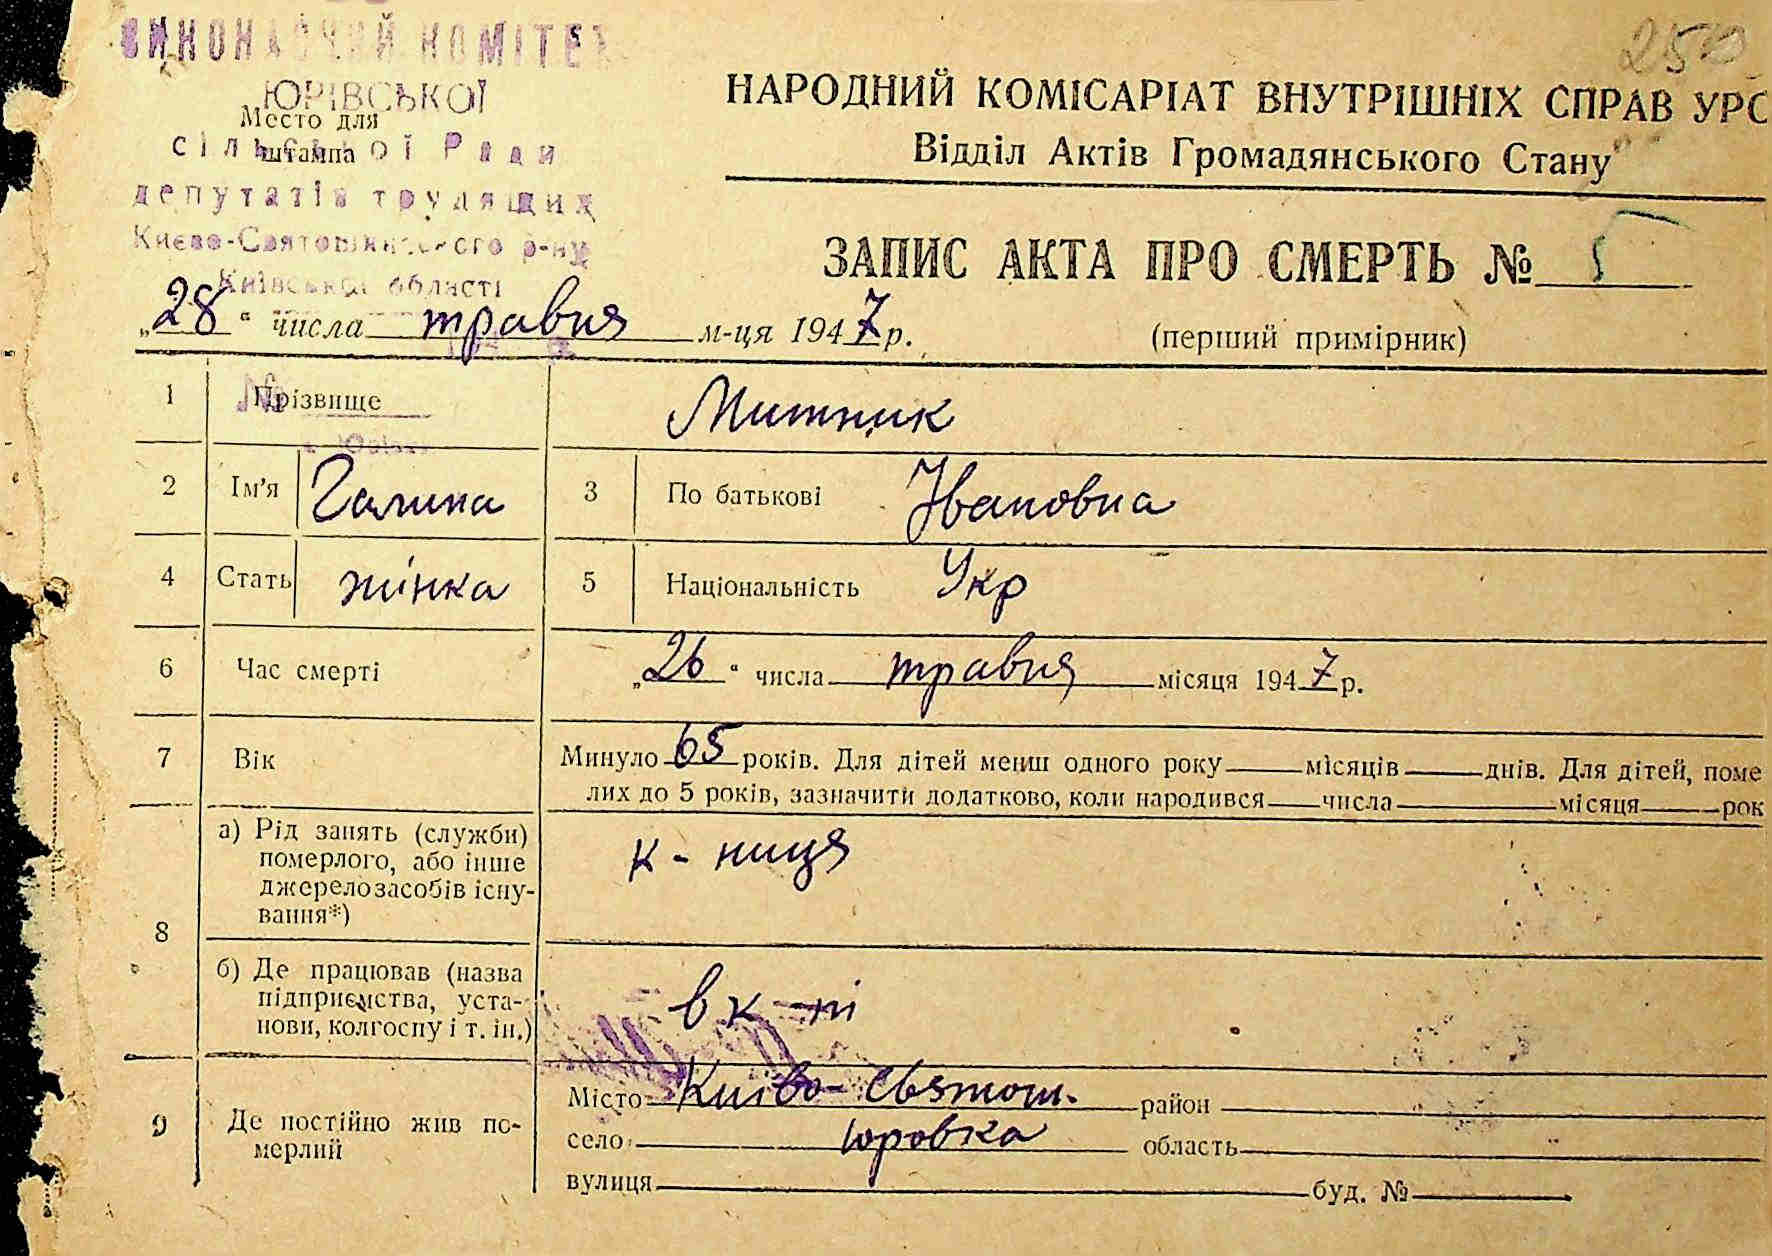 250
ВИКОНАВЧИЙ КОМІТЕТ
ЮРІВСЬКОЇ
сільської Ради
депутатів трудящих
Києво-Святошинського р-ну
Київської області
Место для
штампа
НАРОДНИЙ КОМІСАРІАТ ВНУТРІШНІХ СПРАВ УРС
Відділ Актів Громадянського Стану
ЗАПИС АКТА ПРО СМЕРТЬ № 5
„28“ числа травня м-ця 1947 р.
(перший примірник)
№
1 Прізвище Митник
2 Ім'я Галина 3 По батькові Івановна
4 Стать жінка 5 Національність Укр
6 Час смерті „26“ числа травня місяця 1947 р.
7 Вік Минуло 65 років. Для дітей менш одного року місяців днів. Для дітей, поме
лих до 5 років, зазначити додатково, коли народився числа місяця рок
8 а) Рід занять (служби) к-ниця
померлого, або інше
джерело засобів існу-
вання*)
б) Де працював (назва в к-пі
підприємства, уста-
нови, колгоспу і т. ін.)
9 Де постійно жив по-
мерлий
Місто Київо-Святош. район
село юровка область
вулиця буд. №